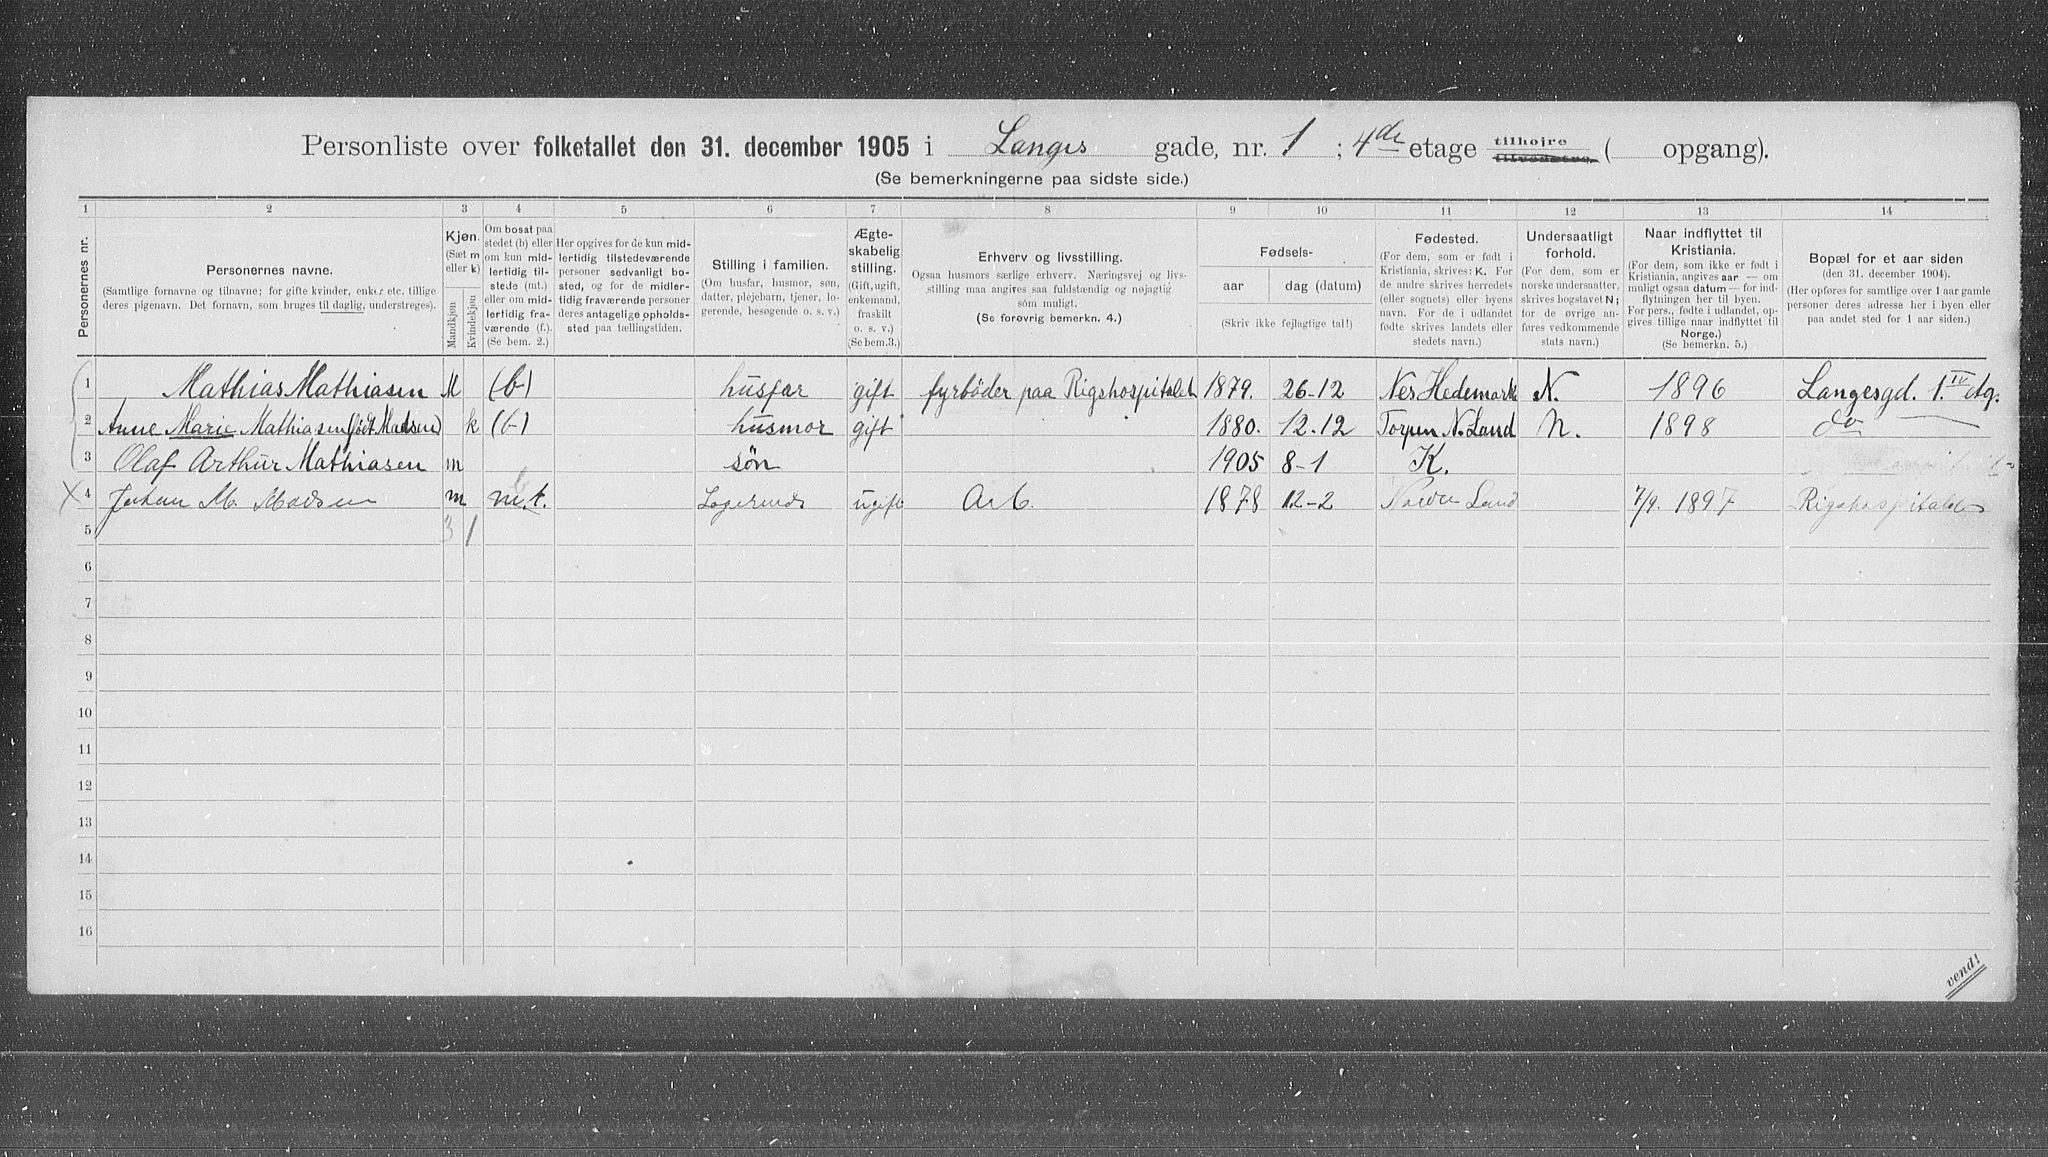 Personliste over folketallet den 31. december 1905 i Langes gade, nr. 1 ; 4de etage tilhøjre tilvenstre. ( opgang).
(Se bemerkningerne paa sidste side.)
1 2 3 4 5 6 7 8 9 10 11 12 13 14
Personernes nr.
Personernes navne.
(Samtlige fornavne og tilnavne; for gifte kvinder, enker etc. tillige
deres pigenavn. Det fornavn, som bruges til daglig, understreges).
Kjøn.
(Sæt m
eller k)
Mandkjøn
Kvindekjøn
Om bosat paa
stedet (b) eller
om kun mid-
lertidig til-
stede (mt.)
eller om mid-
lertidig fra-
værende (f.).
(Se bem. 2.)
Her opgives for de kun mid-
lertidig tilstedeværende
personer sedvanligt bo-
sted, og for de midler-
tidig fraværende personer
deres antagelige opholds-
sted paa tællingstiden.
Stilling i familien.
(Om husfar, husmor, søn,
datter, plejebarn, tjener, lo-
gerende, besøgende o. s. v.)
Ægte-
skabelig
stilling.
(Gift, ugift,
enkemand,
fraskilt
o. s. v.)
(Se bem.3.)
Erhverv og livsstilling.
Ogsaa husmors særlige erhverv. Næringsvej og livs-
stilling maa angives saa fuldstændig og nøjagtig
som muligt.
(Se forøvrig bemerkn. 4.)
Fødsels-
aar
dag (datum)
(Skriv ikke fejlagtige tal!)
Fødested.
(For dem, som er født i
Kristiania, skrives: K. For
de andre skrives herredets
(eller sognets) eller byens
navn. For de i udlandet
fødte skrives landets eller
stedets navn.)
Undersaatligt
forhold.
(For dem, som er
norske undersaatter,
skrives bogstavet N;
for de øvrige an-
føres vedkommende
stats navn.)
Naar indflyttet til
Kristiania.
(For dem, som ikke er født i
Kristiania, angives aar — om
muligt ogsaa datum — for ind-
flytningen her til byen.
For pers., fødte i udlandet, op-
gives tillige naar indflyttet til
Norge.)
(Se bemerkn. 5.)
Bopæl for et aar siden
(den 31. december 1904).
(Her opføres for samtlige over 1 aar gamle
personer deres adresse her i byen eller
paa andet sted for 1 aar siden.)
1 Mathias Mathiasen M (b) husfar gift fyrbøder paa Rigshospitalet 1879. 26-12 Nes Hedemark N. 1896 Langesgd. 1. IV etg.
2 Anne Marie Mathiasen (født Madsen) k (b) husmor gift 1880. 12.12 Torpen N. Land N. 1898 do
3 Olaf Arthur Mathiasen m søn 1905 8-1 K.
X 4 Johan M. Madsen m m.t. Logerende ugift Arb. 1878 12-2 Nordre Land 7/9. 1897 Rigshospitalet
5 3 1
6
7
8
9
10
11
12
13
14
15
16
vend!